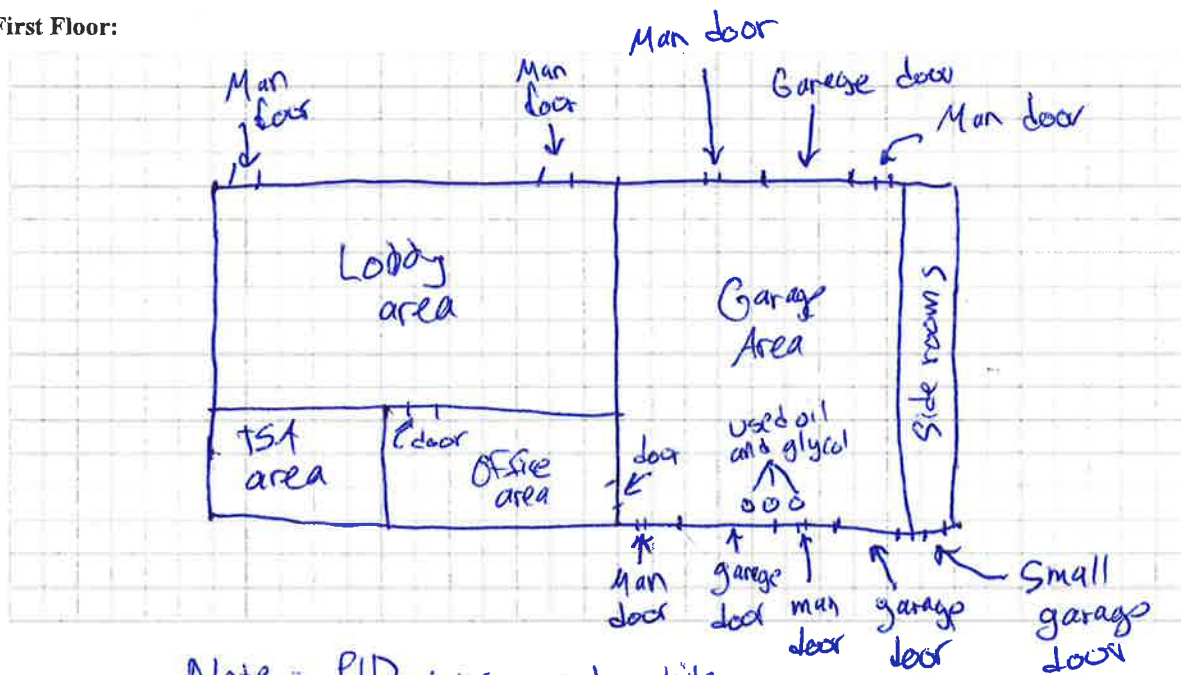 First Floor:
Man door
Man
door
Man
door
Garage door
Man door
Lobby
area
Garage
Area
Side rooms
TSA
area
door
Office
area
door
used oil
and glycol
Man
door
garage
door
man
door
garage
door
Small
garage
door
Note - PID